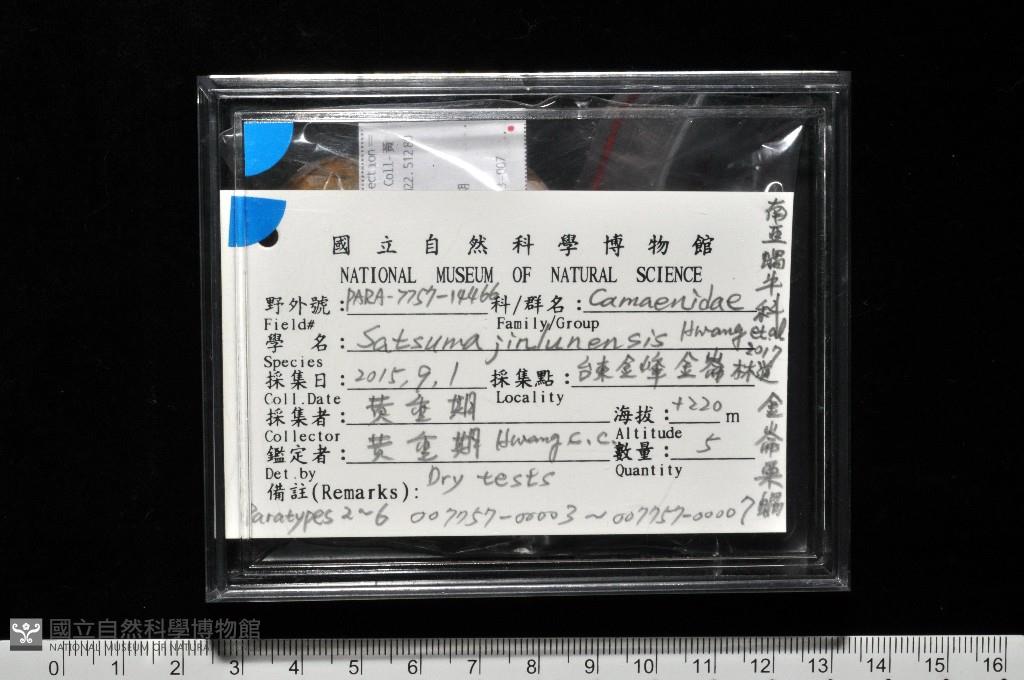 ection=
Coll-黃
022.5128
-007
國立自然科學博物館
NATIONAL MUSEUM OF NATURAL SCIENCE
野外號：PARA-7757-14466 科/群名：Camaenidae
Field# Family/Group
學 名：Satsuma jinlunensis Hwang et al 2017
Species
採集日：2015,9,1 採集點：台東金峰金崙林道
Coll.Date Locality
採集者：黃重期 海拔：+220 m
Collector Altitude
鑑定者：黃重期 Hwang C.C. 數量：5
Det.by Quantity
Dry tests
備註(Remarks)：
Paratypes 2~6 007757-00003~007757-00007
南亞蝸牛科
金崙巢蝸
國立自然科學博物館
NATIONAL MUSEUM OF NATURAL
0 1 2 3 4 5 6 7 8 9 10 11 12 13 14 15 16